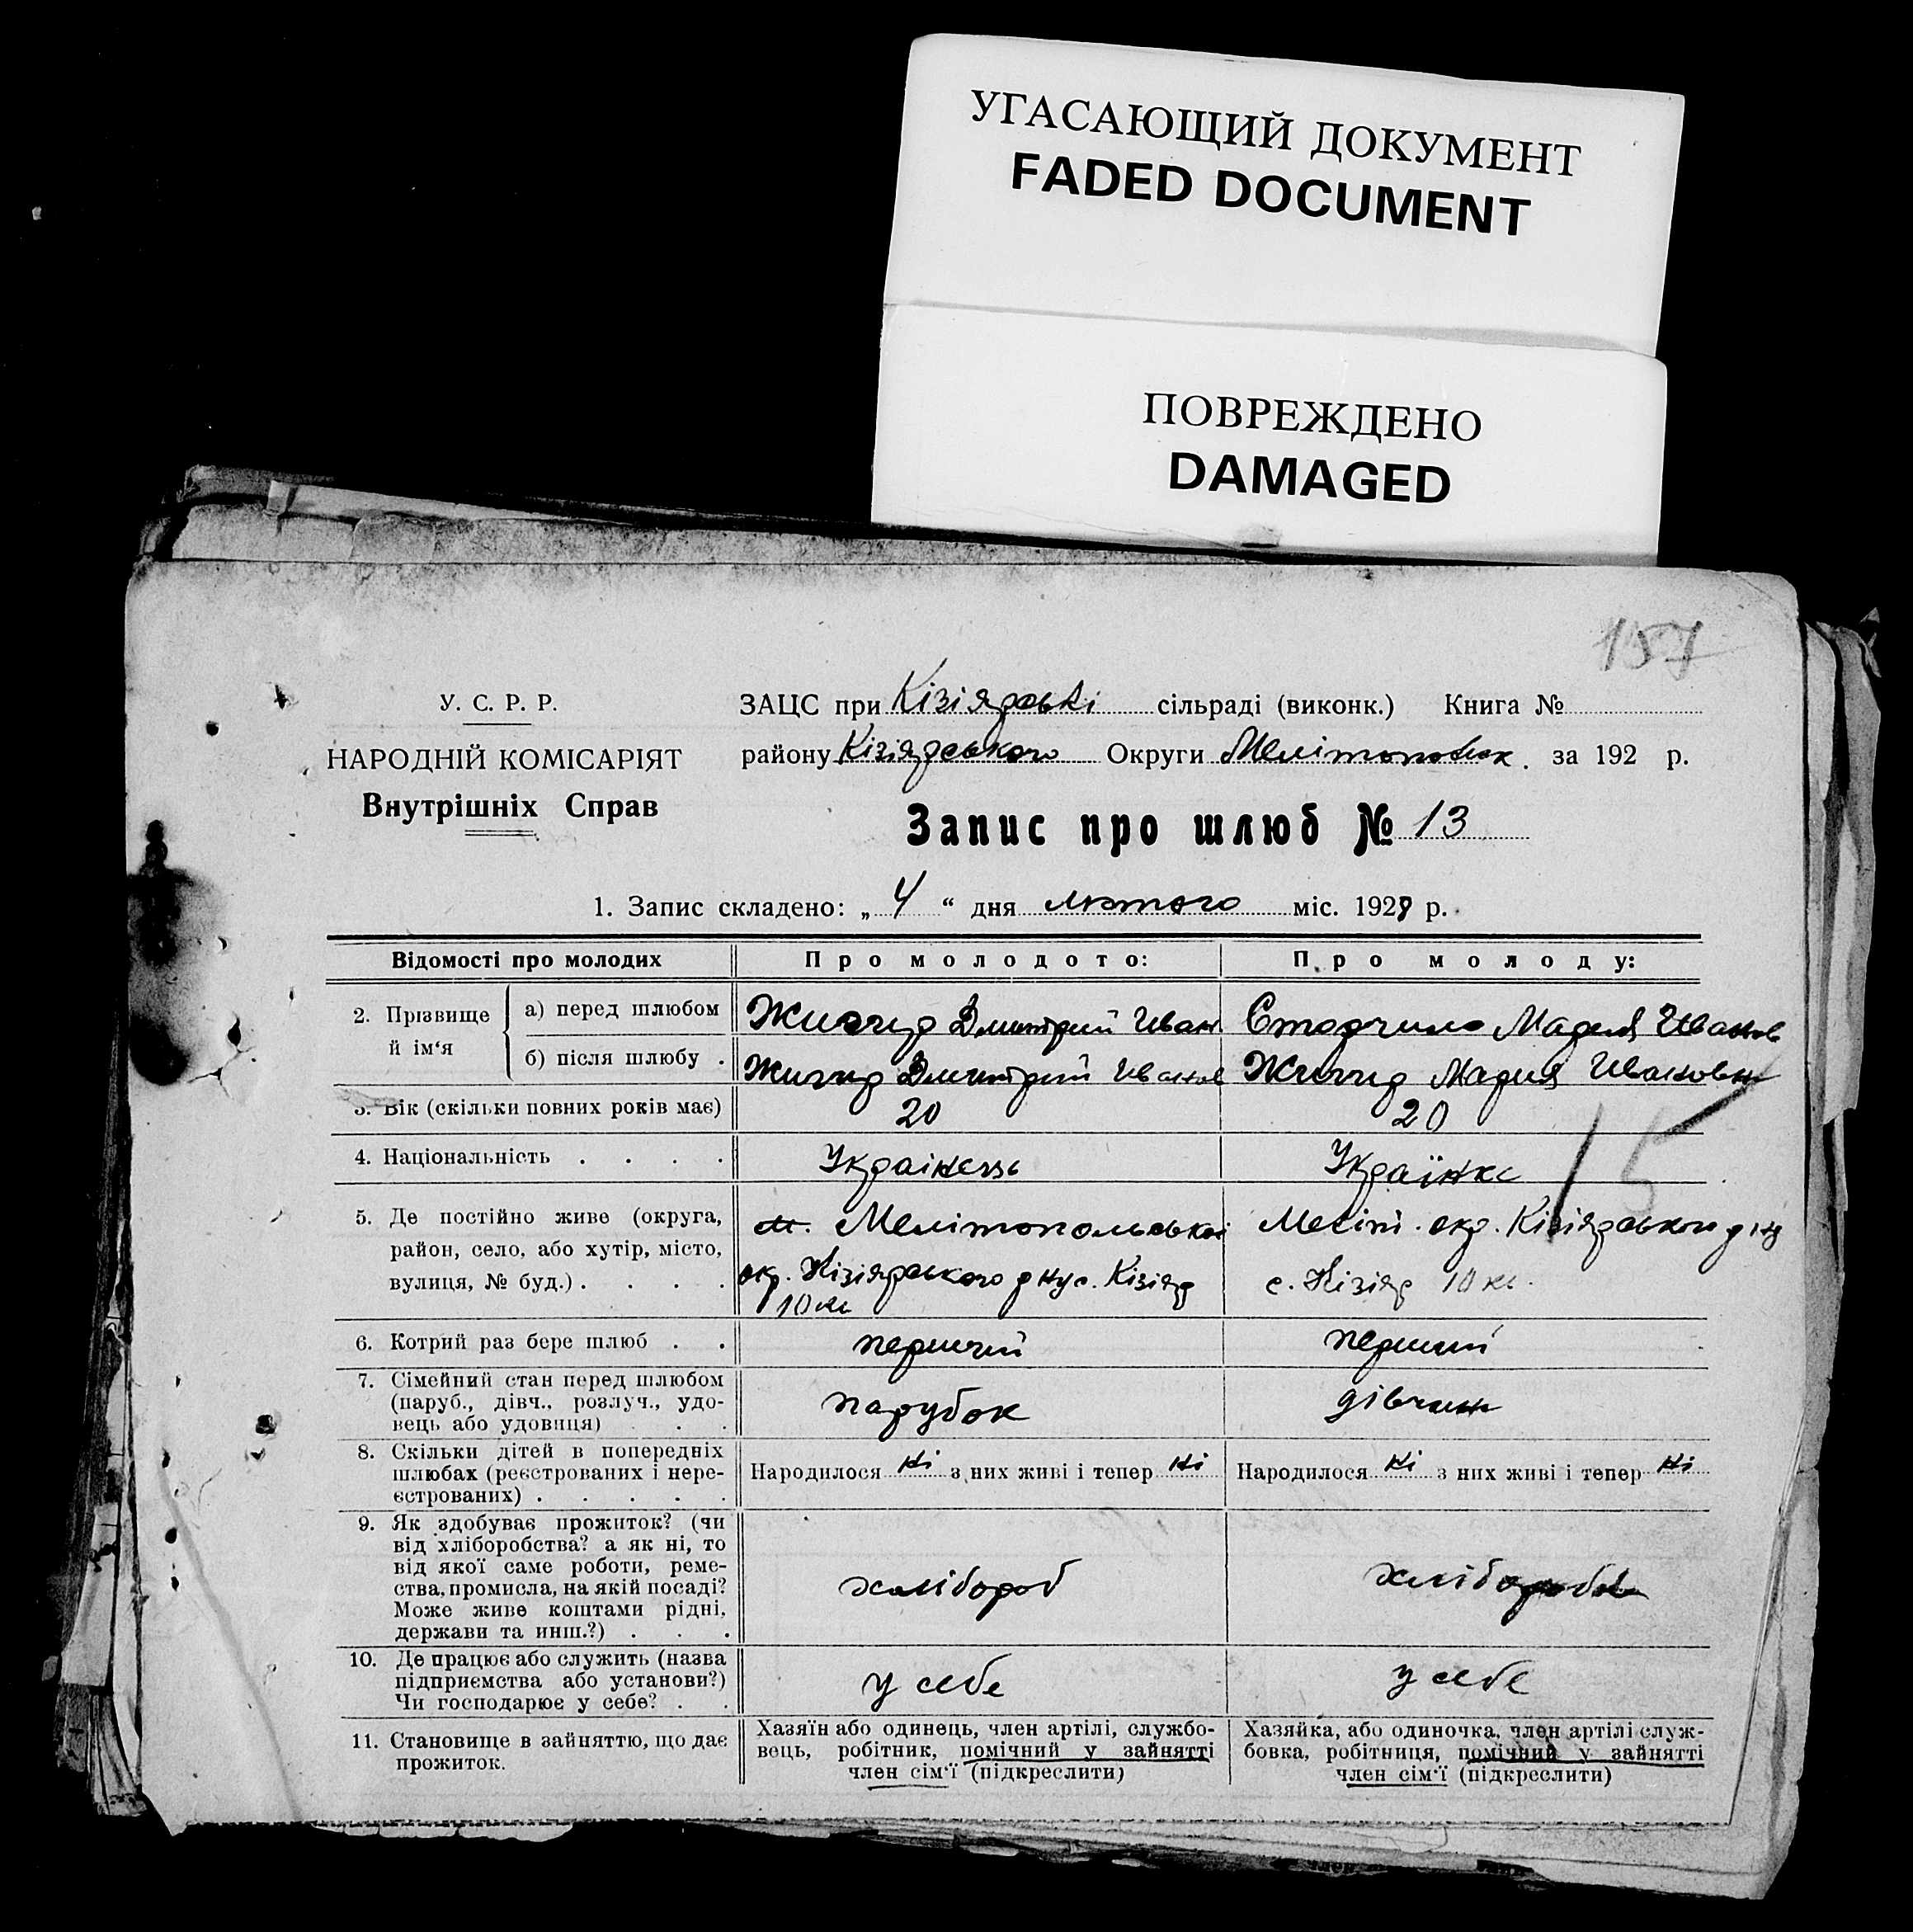 УГАСАЮЩИЙ ДОКУМЕНТ
FADED DOCUMENT
ПОВРЕЖДЕНО
DAMAGED
157
У. С. Р. Р.
НАРОДНІЙ КОМІСАРІЯТ
Внутрішніх Справ
ЗАЦС при Кізіярські сільраді (виконк.) Книга №
району Кізіярського Округи за 192 р.
Запис про шлюб № 13
1. Запис складено: „ 4 “ дня лютого міс. 1928 р.
Відомості про молодих
Про молодого:
Про молоду:
2. Прізвище й ім‘я
а) перед шлюбом
Дмитрий Иван
Мария Иванов
б) після шлюбу .
Дмитрий Иванов
Мария Ивановн
3. Вік (скільки повних років має)
20
20
4. Національність . . . .
Українець
Українка
15
5. Де постійно живе (округа,
район, село, або хутір, місто,
вулиця, № буд.) . . . .
Мелітопольської
окр. Кізіярського р ну с. Кізіяр
Меліт. окр. Кізіярського р ну
с. Кізіяр
6. Котрий раз бере шлюб . .
перший
перший
7. Сімейний стан перед шлюбом
(паруб., дівч., розлуч., удо-
вець або удовиця) . .
парубок
дівчина
8. Скільки дітей в попередніх
шлюбах (реєстрованих і нере-
єстрованих) . . . . .
Народилося ні з них живі і тепер ні
Народилося ні з них живі і тепер ні
9. Як здобуває прожиток? (чи
від хліборобства? а як ні, то
від якої саме роботи, реме-
ства, промисла, на якій посаді?
Може живе коштами рідні,
держави та инш.?) . . .
хлібороб
10. Де працює або служить (назва
підприємства або установи?)
Чи господарює у себе? . .
у себе
у себе
11. Становище в зайняттю, що дає
прожиток.
Хазяїн або одинець, член артілі, службо-
вець, робітник, помічний у зайнятті
член сім‘ї (підкреслити)
Хазяйка, або одиночка, член артілі служ-
бовка, робітниця, помічний у зайнятті
член сім‘ї (підкреслити)